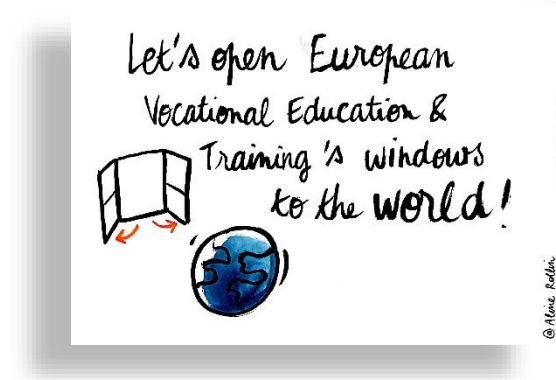 Let's open European
Vocational Education &
Training 's windows
to the world!
@Aline Rollin